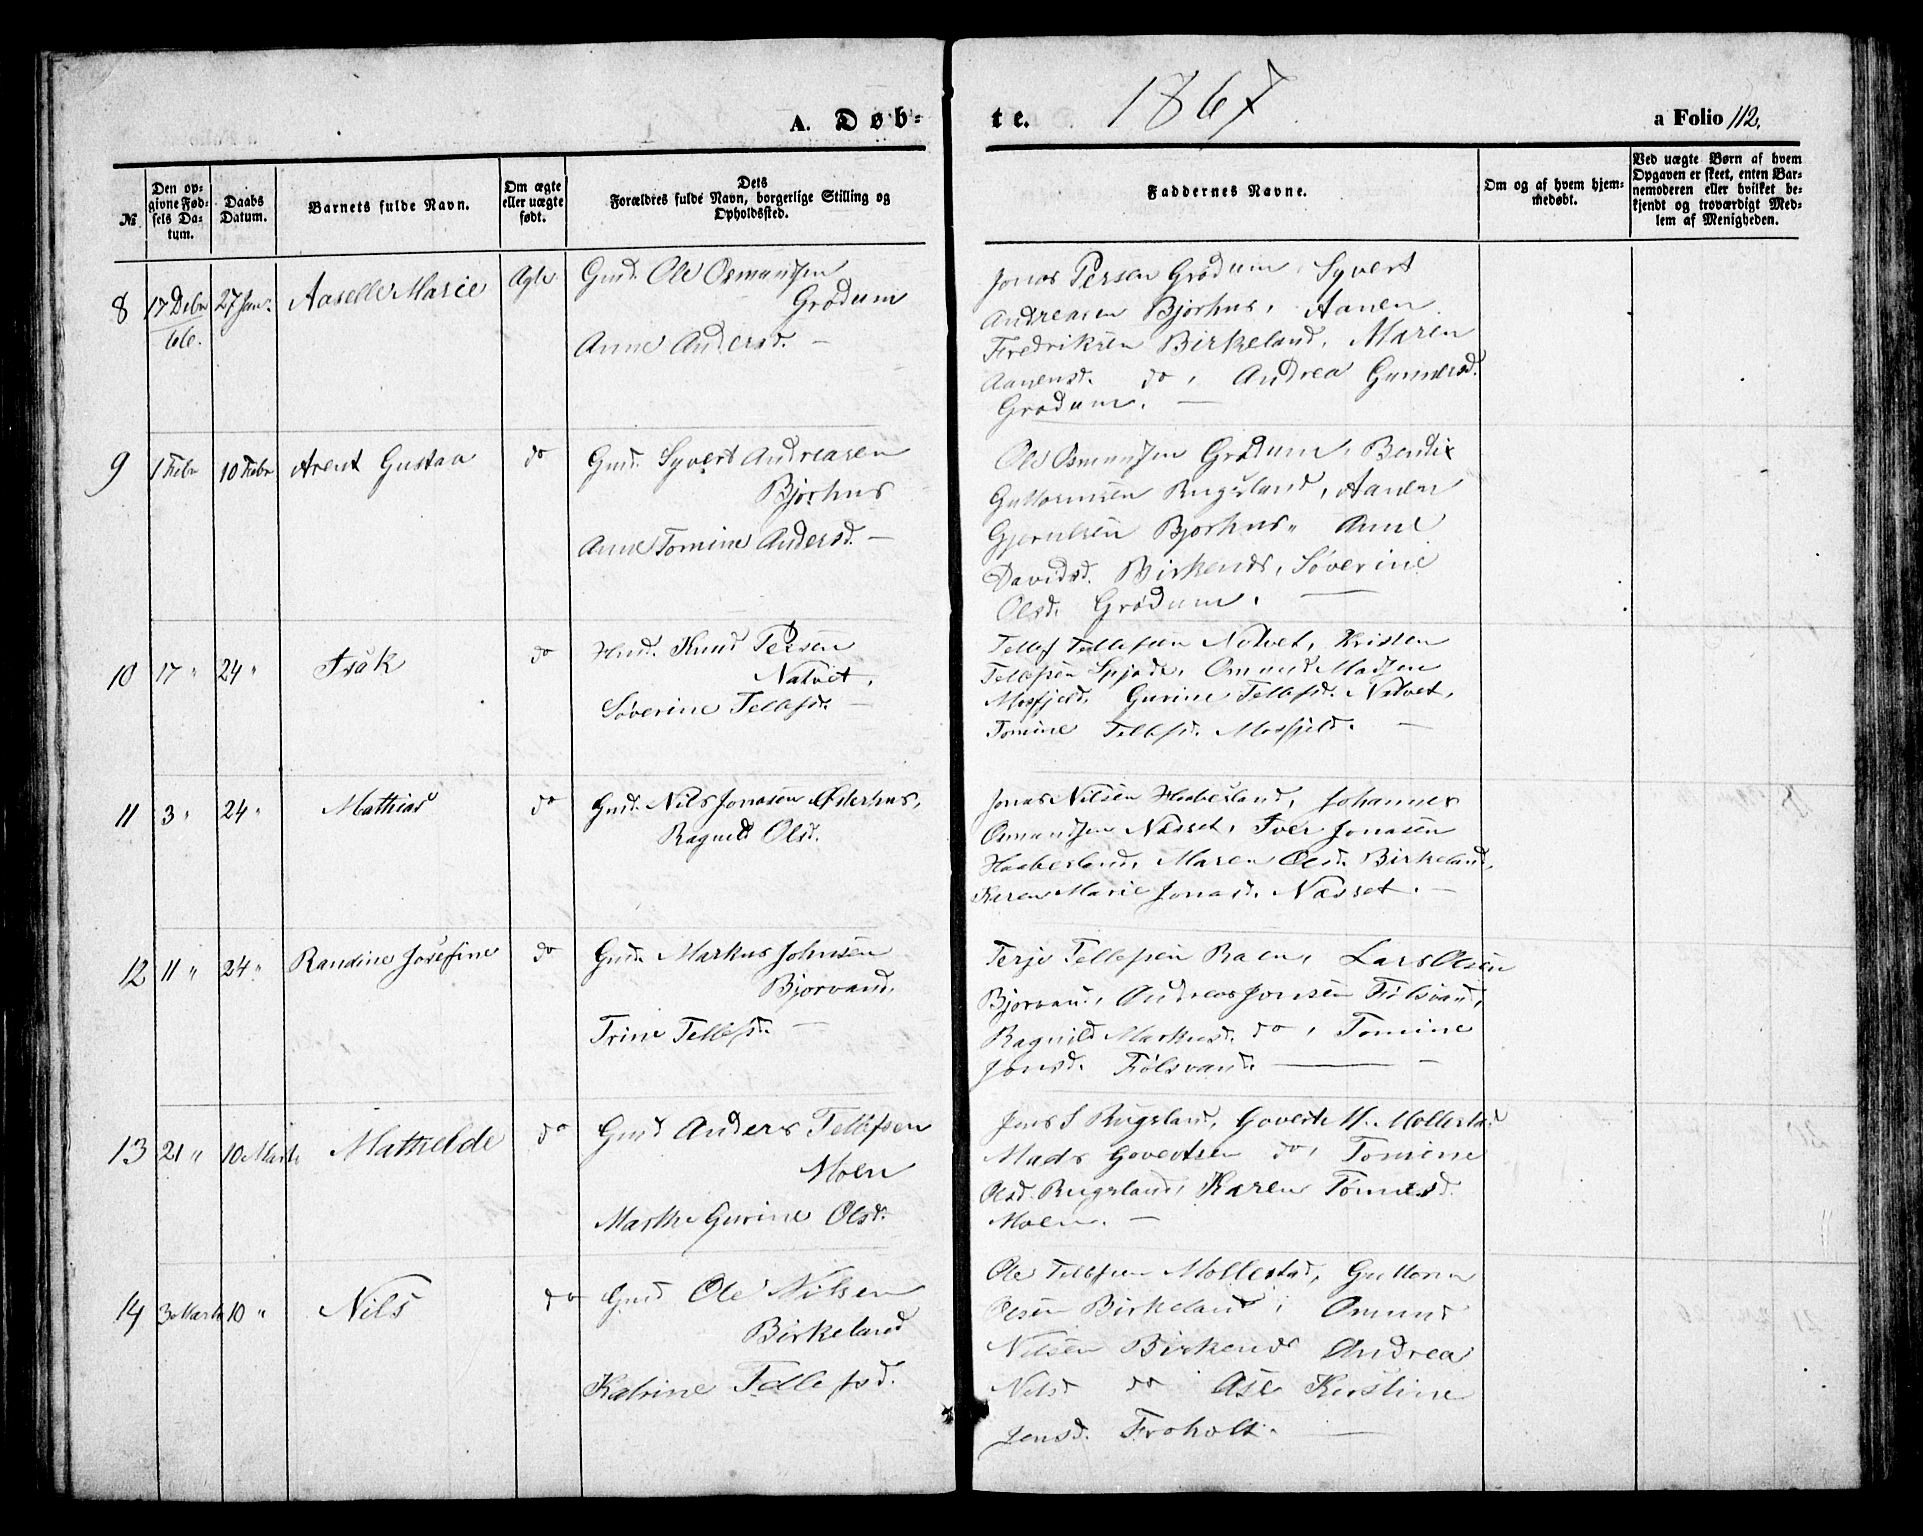 1867
A. Døb-
te.
a Folio 112.
№
Den op-
givne Fød-
sels Da-
tum.
Daabs
Datum.
Barnets fulde Navn.
Om ægte
eller uægte
født.
Dets
Forældres fulde Navn, borgerlige Stilling og
Opholdssted.
Faddernes Navne.
Om og af hvem hjem-
medøbt.
Ved uægte Børn af hvem
Opgaven er skeet, enten Bar-
nemoderen eller hvilket be-
kjendt og troværdigt Med-
lem af Menigheden.
8 17 Debr 27 Jan. Aaselle Marie Ægte Gmd. Ole Osmundsen
66.
Grødum
Anne Andersd. —
Jonas Persen Grødum, Syvert
Andreasen Bjorhus, Aanen
Fredriksen Birkeland, Maren
Aanensd. do, Andrea Gunnersd.
Grødum. —
9 1 Febr 10 Febr Arent Gustav do Gmd. Syvert Andreasen
Bjorhus
Anne Tomine Andersd. —
Ole Osmundsen Grødum, Bendix
Guttormsen Rugsland, Aanen
Gjerulsen Bjorhus, Anne
Davidsd. Birkends, Söverine
Olsd. Grødum. —
10 17 " 24 " Isak do Hmd. Knud Persen
Natvet,
Söverine Tellefsd. —
Tellef Tellefsen Natvet, Kristen
Tellefsen Omund Madsen
Mosfjeld, Gurine Tellefsd. Natvet,
Tomine Tellefsd. Mosfjeld. —
11 3 " 24 " Mathias do Gmd. Nils Jonasen Østerhus,
Ragnild Olsd.
Jonas Nilsen Haaberland, Johannes
Osmundsen Næsset, Iver Jonasen
Haaberland, Maren Olsd. Birkeland,
Karen Marie Jonasd. Næsset. —
12 11 " 24 " Randine Josefine do Gmd. Markus Johnsen
Bjorvand,
Trine Tellefsd. —
Terje Tellefsen Raen, Lars Olsen
Bjorvand, Andreas Jonsen Fiölsvand,
Ragnild Markusd. do, Tomine
Jonsd. Fiölsvand. —
13 21 " 10 Marts Mathilde do Gmd Anders Tellefsen
Moen
Marthe Gurine Olsd.
Jens S Rugsland, Govert M. Mollestad
Mads Govertsen do, Tomine
Olsd. Rugsland, Karen Tömesd.
Moen. —
14 3 Marts 10 " Nils do Gmd Ole Nilsen
Birkeland
Katrine Tellefsd.
Ole Tellefsen Mollestad, Guttorm
Olsen Birkeland, Omund
Nilsen Birkends Andrea
Nilsd do Åse Kirstine
Jensd. Froholt. —